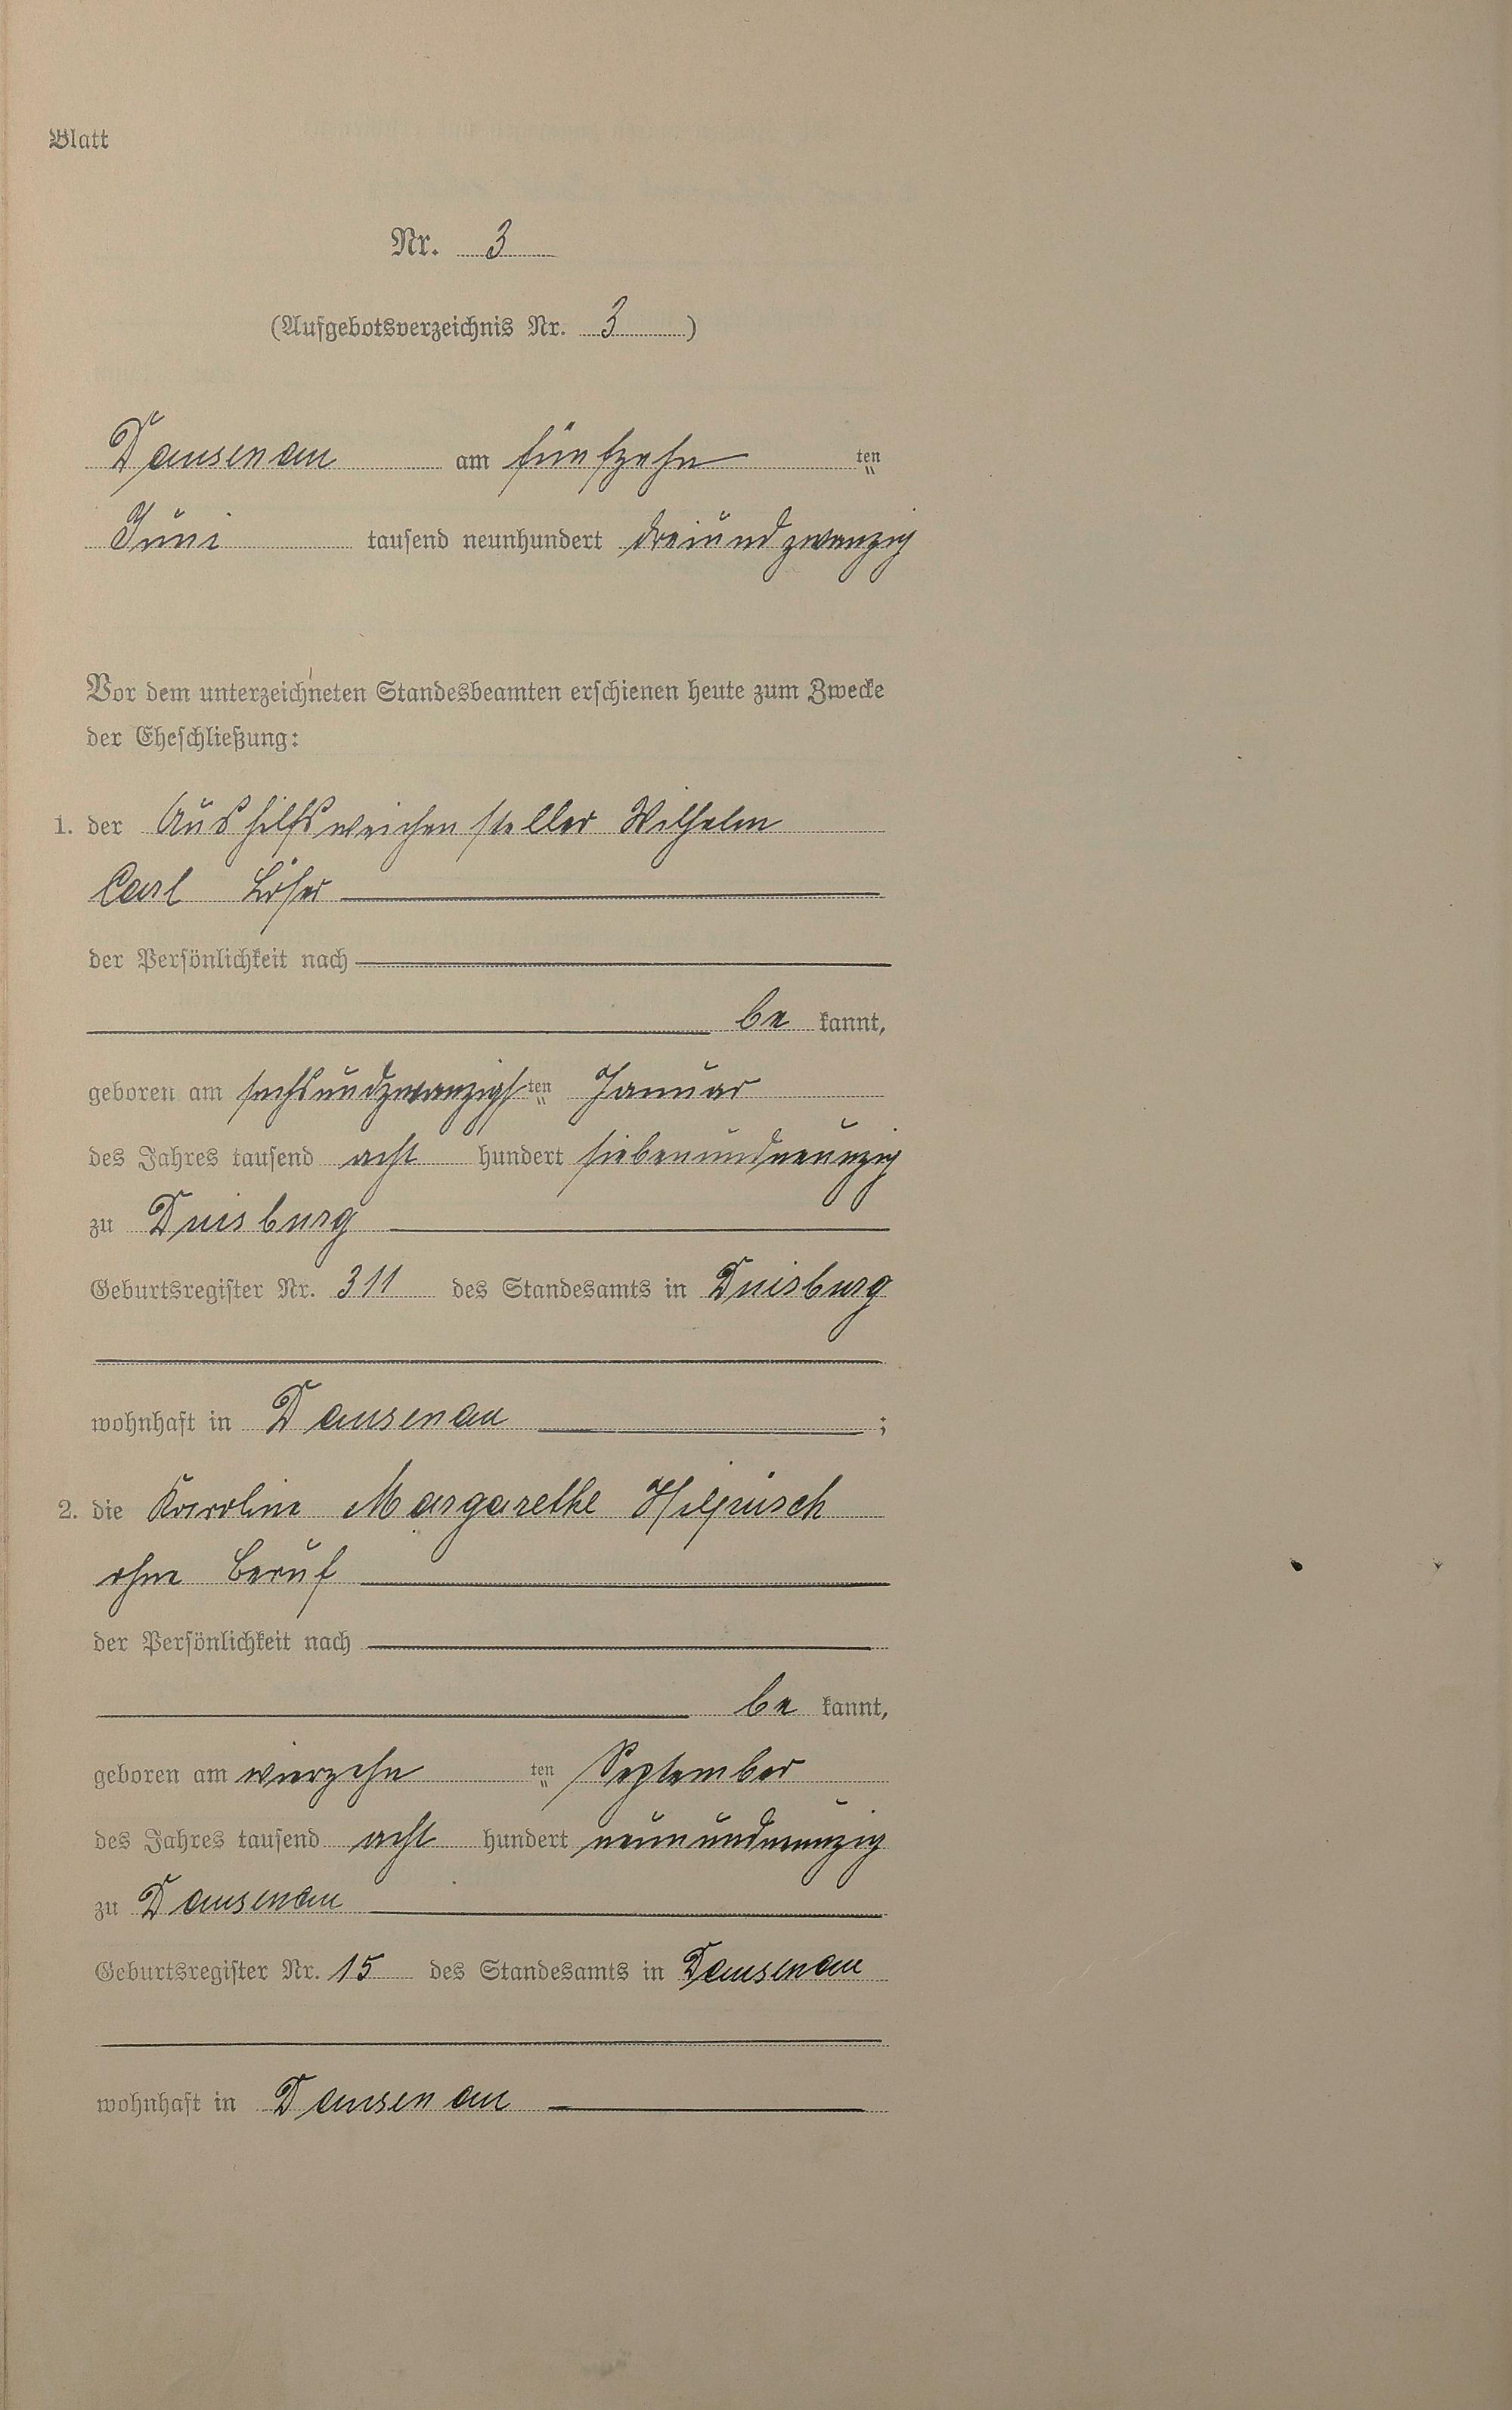 Blatt
Nr. 3
(Aufgebotsverzeichnis Nr. 3 )
Dausenau am fünfzehn ten
Juni tausend neunhundert dreiundzwanzig
Vor dem unterzeichneten Standesbeamten erschienen heute zum Zwecke
der Eheschließung:
1. der Aushilfsweichensteller Wilhelm
Carl Löser
der Persönlichkeit nach
be kannt,
geboren am sechsundzwanzigsten Januar
des Jahres tausend acht hundert siebenundneunzig
zu Duisburg
Geburtsregister Nr. 311 des Standesamts in Duisburg
wohnhaft in Dausenau ;
2. die Karoline Margarethe Hilpüsch
ohne Beruf
der Persönlichkeit nach
be kannt,
geboren am vierzehn ten September
des Jahres tausend acht hundert neunundneunzig
zu Dausenau
Geburtsregister Nr. 15 des Standesamts in Dausenau
wohnhaft in Dausenau